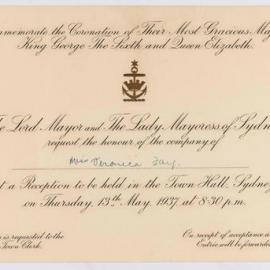 memorate the Coronation of Their Most Gracious Maj
King George The Sixth and Queen Elizabeth.
e Lord Mayor and The Lady Mayoress of Sydn
request the honour of the company of
Miss Veronica Fay.
t a Reception to be held in the Town Hall, Sydne
on Thursday, 13th May, 1937 at 8:30 p.m.
is requested to the
Town Clerk.
On receipt of acceptance a
Entrée will be forwarde